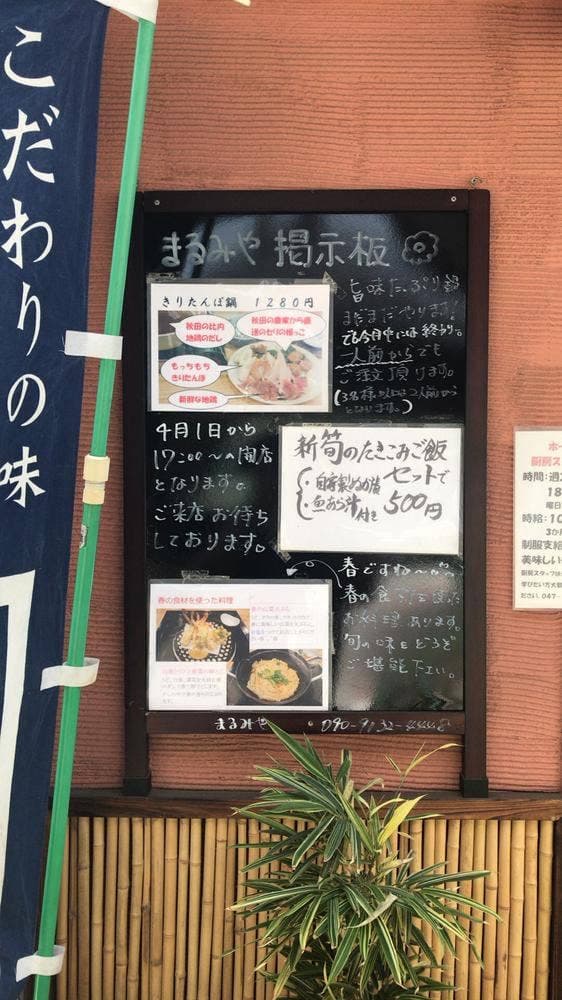 こだわりの味
まるみや 掲示板
きりたんぽ鍋 1280円
秋田の比内
地鶏のだし
秋田の農家から直
送のせりの根っこ
もっちもち
きりたんぽ
新鮮な地鶏
旨味たっぷり鍋
まだまだやります。
でも今月中には終わり。
一人前からでも
ご注文頂けます。
4月1日から
17:00〜の開店
となります。
ご来店お待ち
しております。
新筍のたきこみご飯
自家製ぬか漬
魚あら汁付き
セットで
500円
春ですね〜
春の食材を使った
お料理あります。
旬の味をどうぞ
ご堪能下さい。
春の食材を使った料理
まるみや
厨房ス
時間:週
18
曜日
時給:10
3か
制服支給
美味しい
厨房スタッフ
学びたい方大
ださい。047-